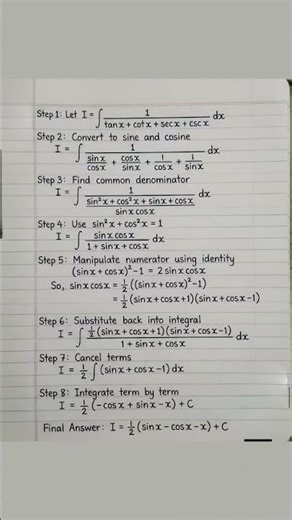 Step 1: Let I = ∫ 1/(tan x + cot x + sec x + csc x) dx
Step 2: Convert to sine and cosine
I = ∫ 1/(sin x/cos x + cos x/sin x + 1/cos x + 1/sin x) dx
Step 3: Find common denominator
I = ∫ 1/((sin²x + cos²x + sin x + cos x)/(sin x cos x)) dx
Step 4: Use sin²x + cos²x = 1
I = ∫ (sin x cos x)/(1 + sin x + cos x) dx
Step 5: Manipulate numerator using identity
(sin x + cos x)² - 1 = 2 sin x cos x
So, sin x cos x = ½ ((sin x + cos x)² - 1)
= ½ (sin x + cos x + 1)(sin x + cos x - 1)
Step 6: Substitute back into integral
I = ∫ (½ (sin x + cos x + 1)(sin x + cos x - 1))/(1 + sin x + cos x) dx
Step 7: Cancel terms
I = ½ ∫ (sin x + cos x - 1) dx
Step 8: Integrate term by term
I = ½ (-cos x + sin x - x) + C
Final Answer: I = ½ (sin x - cos x - x) + C